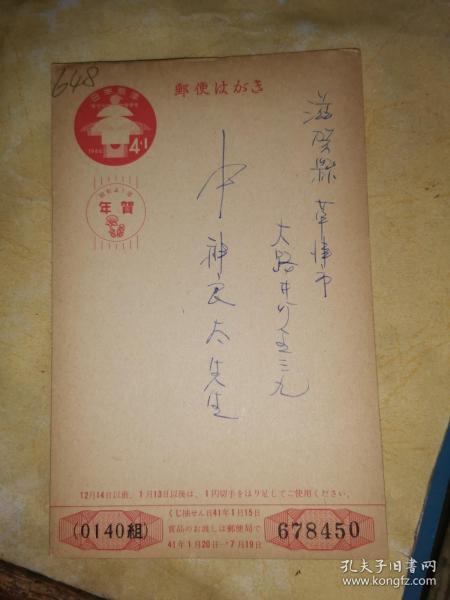 648
郵便はがき
日本郵便
4+1
1966
年賀
滋賀縣 草津市
大路井町五三九
中神良太先生
12月14日以前、1月13日以後は、1円切手をはり足してご使用ください。
くじ抽せん日41年1月15日
賞品のお渡しは郵便局で
41年1月20日→7月19日
(0140組)
678450
孔夫子旧书网
www.kongfz.com